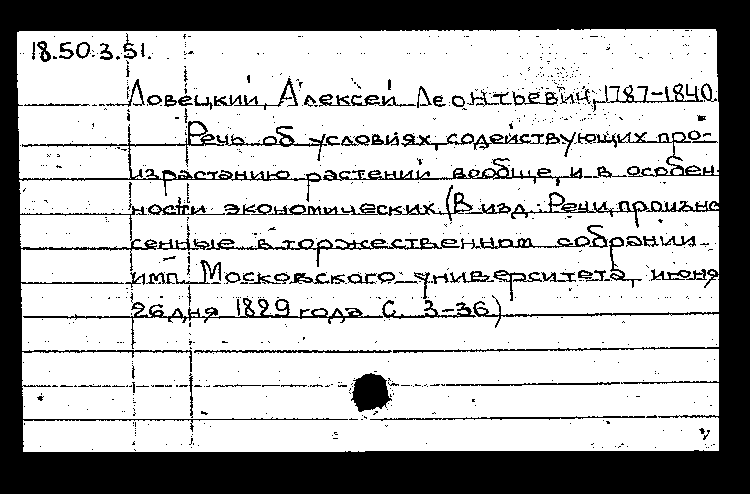 18.50.3.51.
Ловецкий, Алексей Леонтьевич, 1787-1840.
Речь об условиях, содействующих про-
израстанию растений вообще, и в особен-
ности экономических. (В изд.: Речи, произне
сенные в торжественном собрании
имп. Московского университета, июня
26 дня 1829 года С. 3-36)